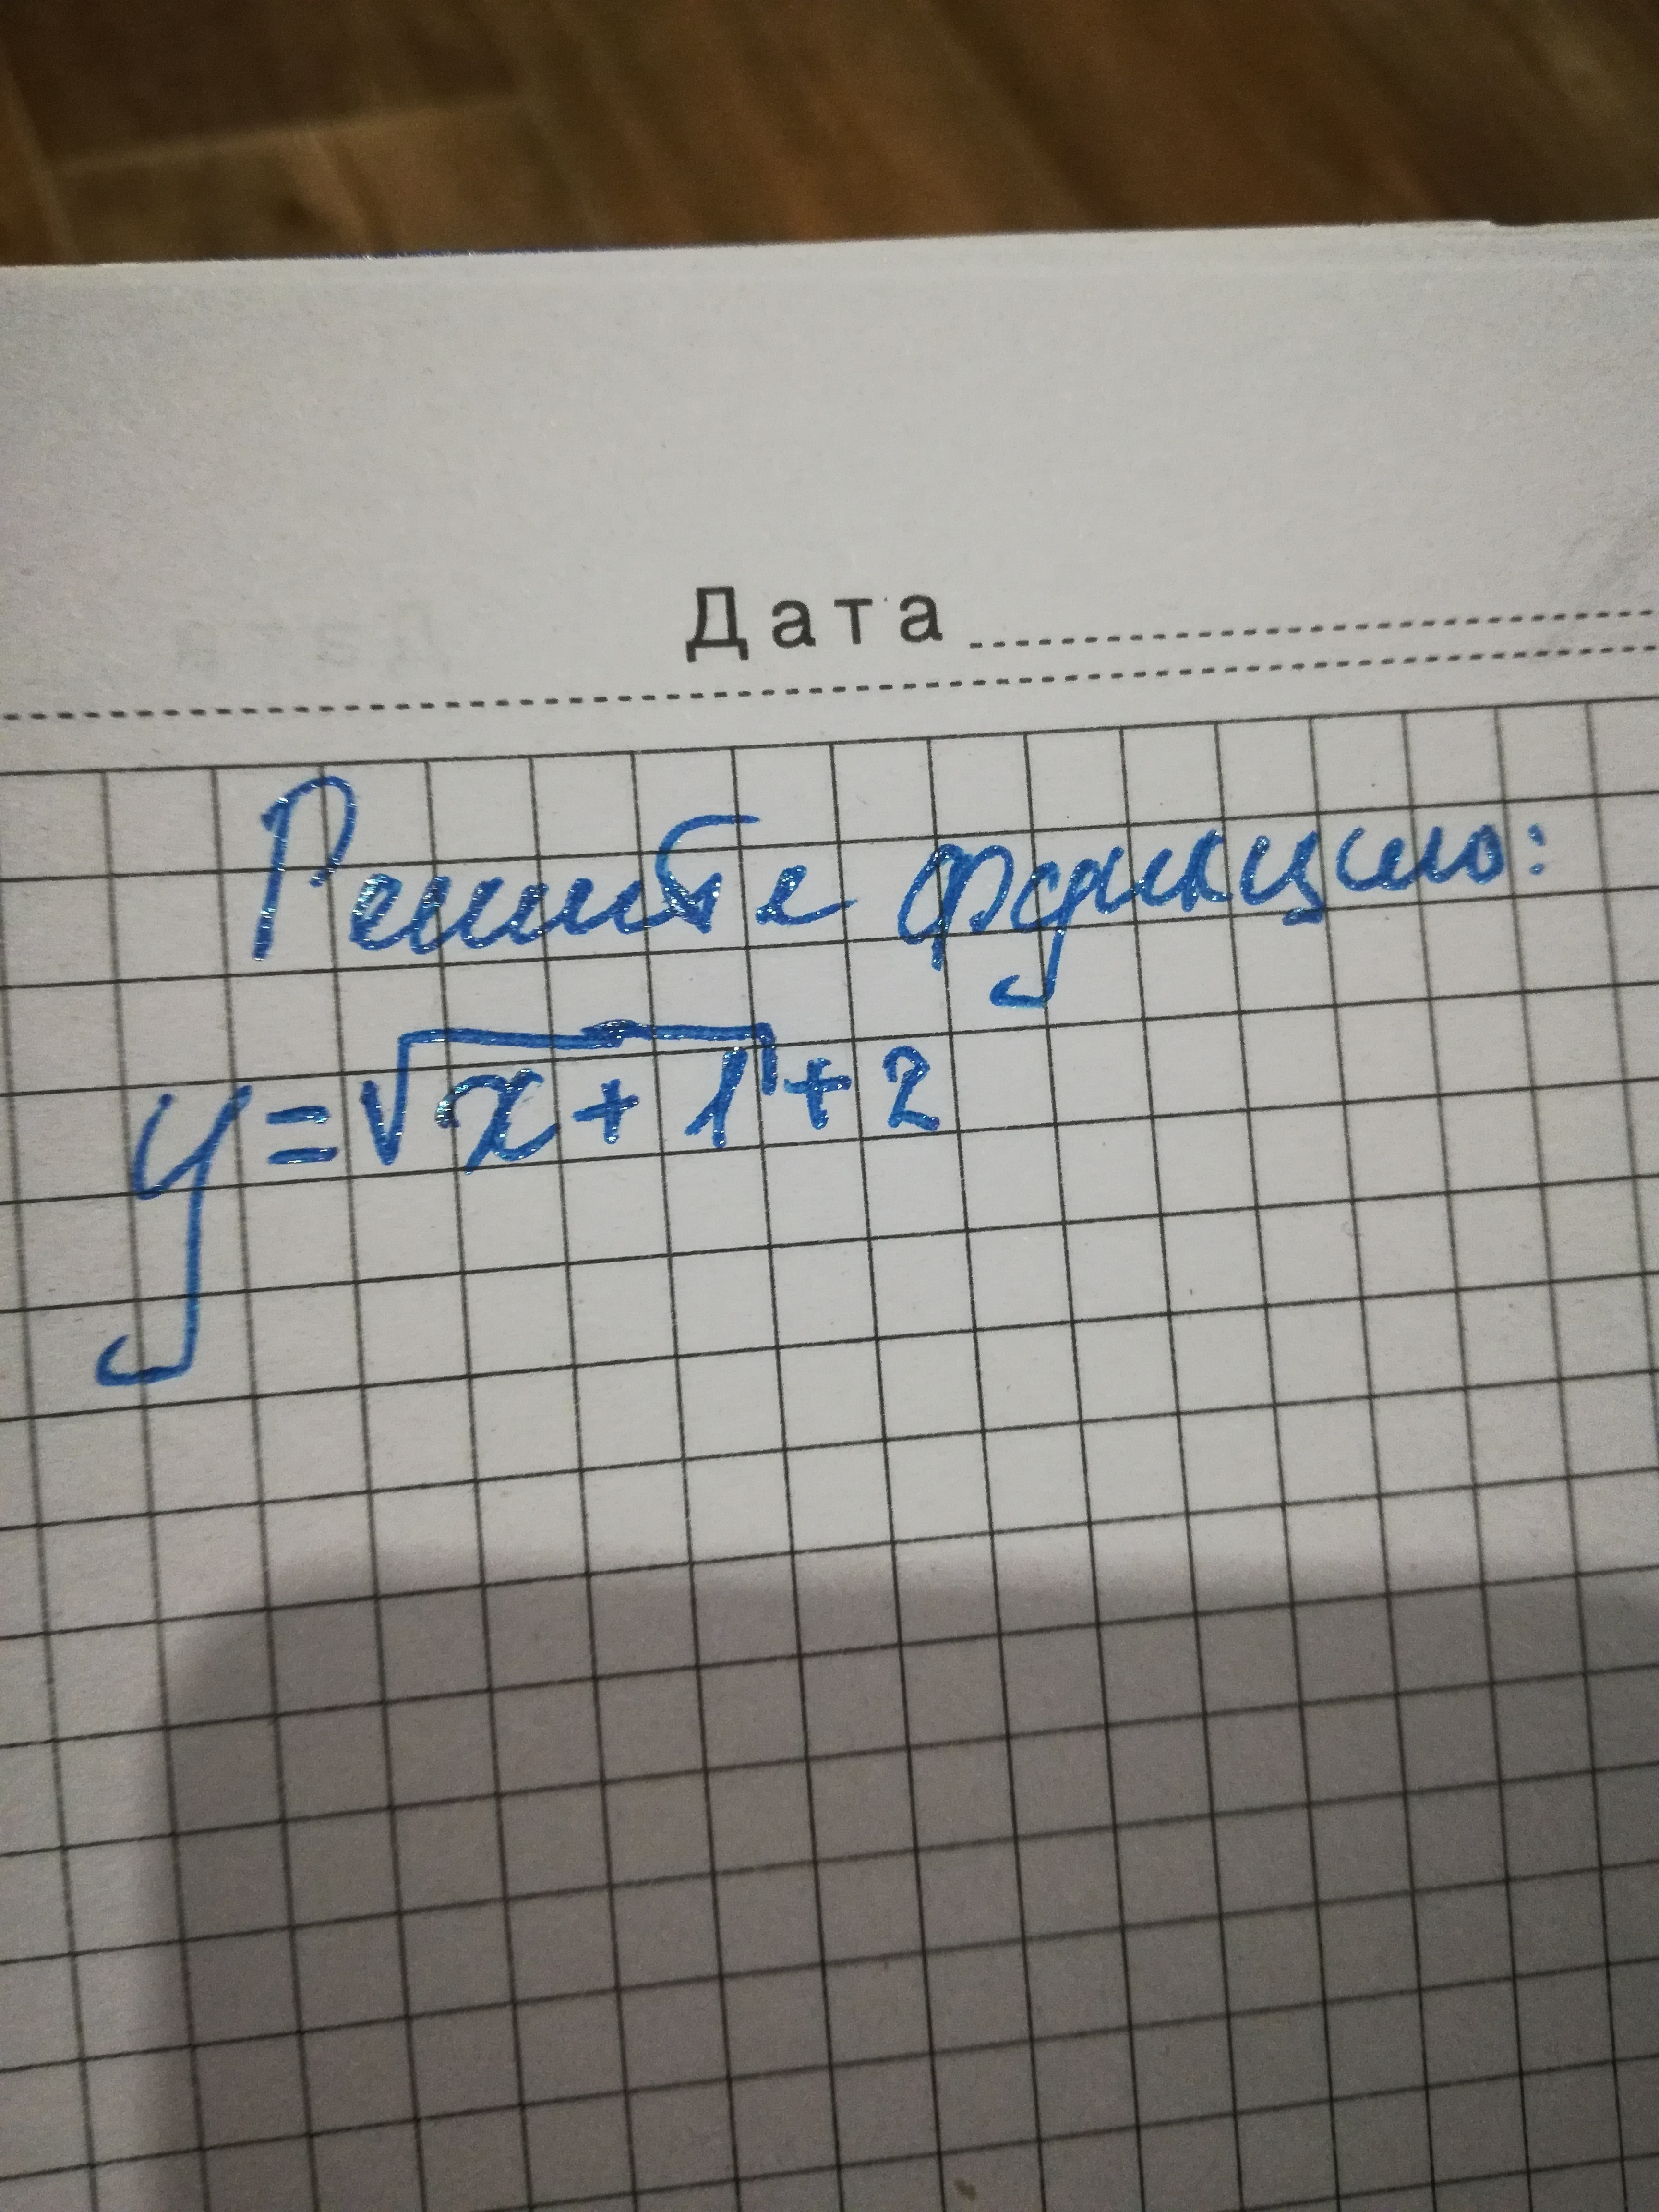 Дата
Решите функцию:
y=√x+1+2